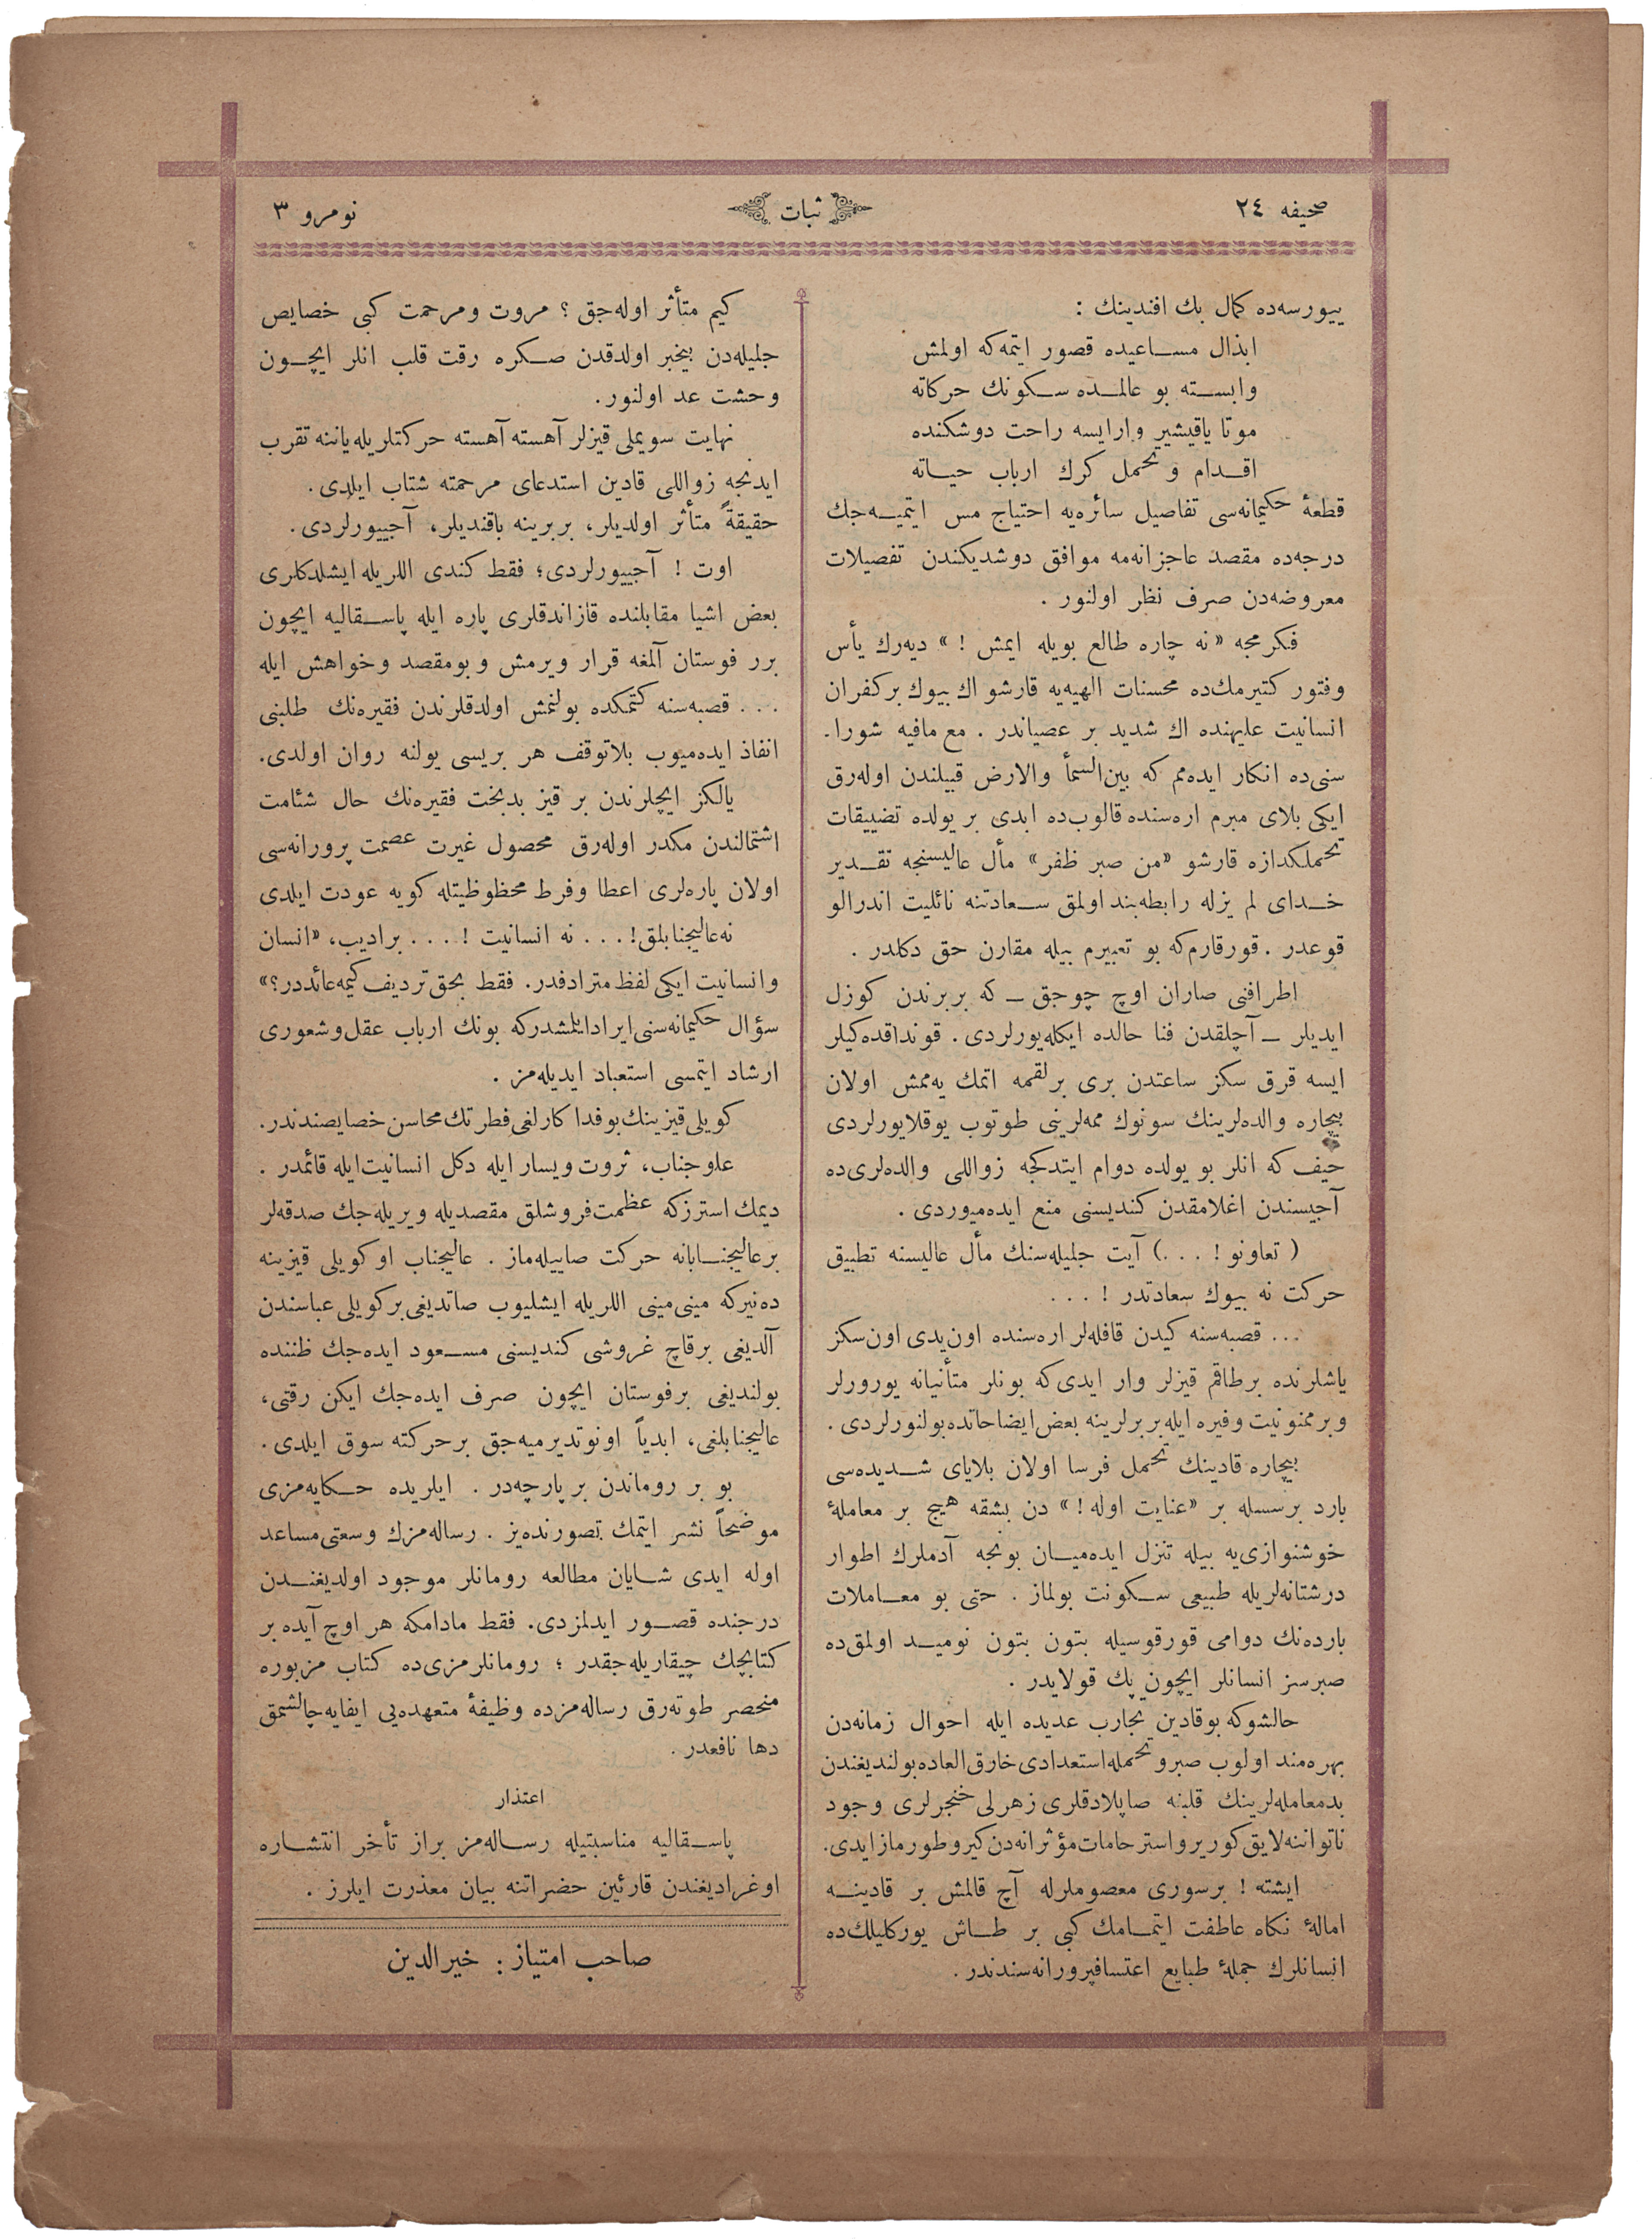 صحیفه ٢٤
ثبات
نومرو ٣
ییورسه‌ده كمال بك افندینك :
ابذال مساعیده قصور ایتمه‌كه اولمش
وابسته بو عالمده سكونك حركاته
موتا یاقیشیر وارایسه راحت دوشكنده
اقدام و تحمل كرك ارباب حیاته
قطعهٔ حكیمانه‌سی تفاصیل سائره‌یه احتیاج مس ایتمیه‌جك
درجه‌ده مقصد عاجزانه‌مه موافق دوشدیكندن تفصیلات
معروضه‌دن صرف نظر اولنور .
فكرمجه «نه چاره طالع بویله ایمش !» دیه‌رك یأس
وفتور كتیرمك‌ده محسنات الهیه‌یه قارشو اك بیوك بركفران
انسانیت علیهنده اك شدید بر عصیاندر . مع مافیه شورا-
سنی‌ده انكار ایده‌مم كه بین‌السمأ والارض قبیلندن اوله‌رق
ایكی بلای مبرم اره‌سنده قالوب‌ده ابدی بر یولده تضییقات
تحملكدازه قارشو «من صبر ظفر» مأل عالیسنجه تقدیر
خدای لم یزله رابطه‌بند اولمق سعادتنه نائلیت اندرالو
قوعدر . قورقارم‌كه بو تعبیرم بیله مقارن حق دكلدر .
اطرافنی صاران اوچ چوجق — كه بربرندن كوزل
ایدیلر — آچلقدن فنا حالده ایكله‌یورلردی . قونداقده‌كیلر
ایسه قرق سكز ساعتدن بری برلقمه اتمك یه‌ممش اولان
بیچاره والده‌لرینك سونوك ممه‌لرینی طوتوب یوقلایورلردی
حیف كه انلر بو یولده دوام ایتدكجه زواللی والده‌لری‌ده
آجیسندن اغلامقدن كندیسنی منع ایده‌میوردی .
( تعاونو ! ...) آیت جلیله‌سنك مأل عالیسنه تطبیق
حركت نه بیوك سعادتدر ! ...
... قصبه‌سنه كیدن قافله‌لر اره‌سنده اون‌یدی اون‌سكز
یاشلرنده برطاقم قیزلر وار ایدی‌كه بونلر متأنیانه یورورلر
وبرممنونیت وفیره ایله‌بربرلرینه بعض‌ایضاحاتده‌بولنورلردی .
بیچاره قادینك تحمل فرسا اولان بلایای شدیده‌سی
بارد برسسله بر «عنایت اوله !» دن بشقه هیچ بر معاملهٔ
خوشنوازی‌یه بیله تنزل ایده‌میان بونجه آدملرك اطوار
درشتانه‌لریله طبیعی سكونت بولماز . حتی بو معاملات
بارده‌نك دوامی قورقوسیله بتون بتون نومید اولمق‌ده
صبرسز انسانلر ایچون پك قولایدر .
حالشوكه بوقادین تجارب عدیده ایله احوال زمانه‌دن
بهره‌مند اولوب صبروتحمله‌استعدادی‌خارق‌العاده‌بولندیغندن
بدمعامله‌لرینك قلبنه صاپلادقلری زهرلی خنجرلری وجود
ناتواننه‌لایق‌كوریرواسترحامات‌مؤثرانه‌دن‌كیروطورمازایدی.
ایشته ! برسوری معصوملرله آچ قالمش بر قادینه
امالهٔ نكاه عاطفت ایتمامك كبی بر طاش یوركلیلك‌ده
انسانلرك جملهٔ طبایع اعتسافپرورانه‌سندندر .
كیم متأثر اوله‌جق ؟ مروت ومرحمت كبی خصایص
جلیله‌دن بیخبر اولدقدن صكره رقت قلب انلر ایچون
وحشت عد اولنور.
نهایت سویملی قیزلر آهسته آهسته حركتلریله‌یاننه تقرب
ایدنجه زواللی قادین استدعای مرحمته شتاب ایلدی .
حقیقةً متأثر اولدیلر، بربرینه باقندیلر، آجییورلردی.
اوت ! آجییورلردی؛ فقط كندی اللریله ایشلدكلری
بعض اشیا مقابلنده قازاندقلری پاره ایله پاسقالیه ایچون
برر فوستان آلمغه قرار ویرمش و بومقصد وخواهش ایله
... قصبه‌سنه كتمكده بولنمش اولدقلرندن فقیره‌نك طلبنی
انفاذ ایده‌میوب بلاتوقف هر بریسی یولنه روان اولدی.
یالكز ایچلرندن بر قیز بدبخت فقیره‌نك حال شئامت
اشتمالندن مكدر اوله‌رق محصول غیرت عصمت پرورانه‌سی
اولان پاره‌لری اعطا وفرط محظوظیتله كویه عودت ایلدی
نه‌عالیجنابلق! ... نه انسانیت ! ... برادیب، «انسان
وانسانیت ایكی لفظ مترادفدر. فقط بحق تردیف كیمه‌عائددر؟»
سؤال حكیمانه‌سنی‌ایرادایلشدركه بونك ارباب عقل‌وشعوری
ارشاد ایتمسی استعباد ایدیله‌مز .
كویلی‌قیزینك‌بوفداكارلغی‌فطرتك‌محاسن‌خصایصندندر.
علوجناب، ثروت ویسار ایله دكل انسانیت‌ایله قائمدر .
دیمك استرزكه عظمت‌فروشلق مقصدیله ویریله‌جك صدقه‌لر
برعالیجنابانه حركت صاییله‌ماز . عالیجناب او كویلی قیزینه
ده‌نیركه مینی‌مینی اللریله ایشلیوب صاتدیغی‌بركویلی‌عباسندن
آلدیغی برقاچ غروشی كندیسنی مسعود ایده‌جك ظننده
بولندیغی برفوستان ایچون صرف ایده‌جك ایكن رقتی،
عالیجنابلغی، ابدیاً اونوتدیرمیه‌جق برحركته سوق ایلدی.
بو بر روماندن برپارچه‌در . ایلریده حكایه‌مزی
موضحاً نشر ایتمك تصورنده‌یز . رساله‌مزك وسعتی‌مساعد
اوله ایدی شایان مطالعه رومانلر موجود اولدیغندن
درجنده قصور ایدلمزدی. فقط مادامكه هر اوچ آیده بر
كتابچك چیقاریله‌جقدر ؛ رومانلرمزی‌ده كتاب مزبوره
منحصر طوته‌رق رساله‌مزده وظیفهٔ متعهده‌یی ایفایه‌چالشمق
دها نافعدر .
اعتذار
پاسقالیه مناسبتیله رساله‌مز براز تأخر انتشاره
اوغرادیغندن قارئین حضراتنه بیان معذرت ایلرز .
صاحب امتیاز : خیرالدین